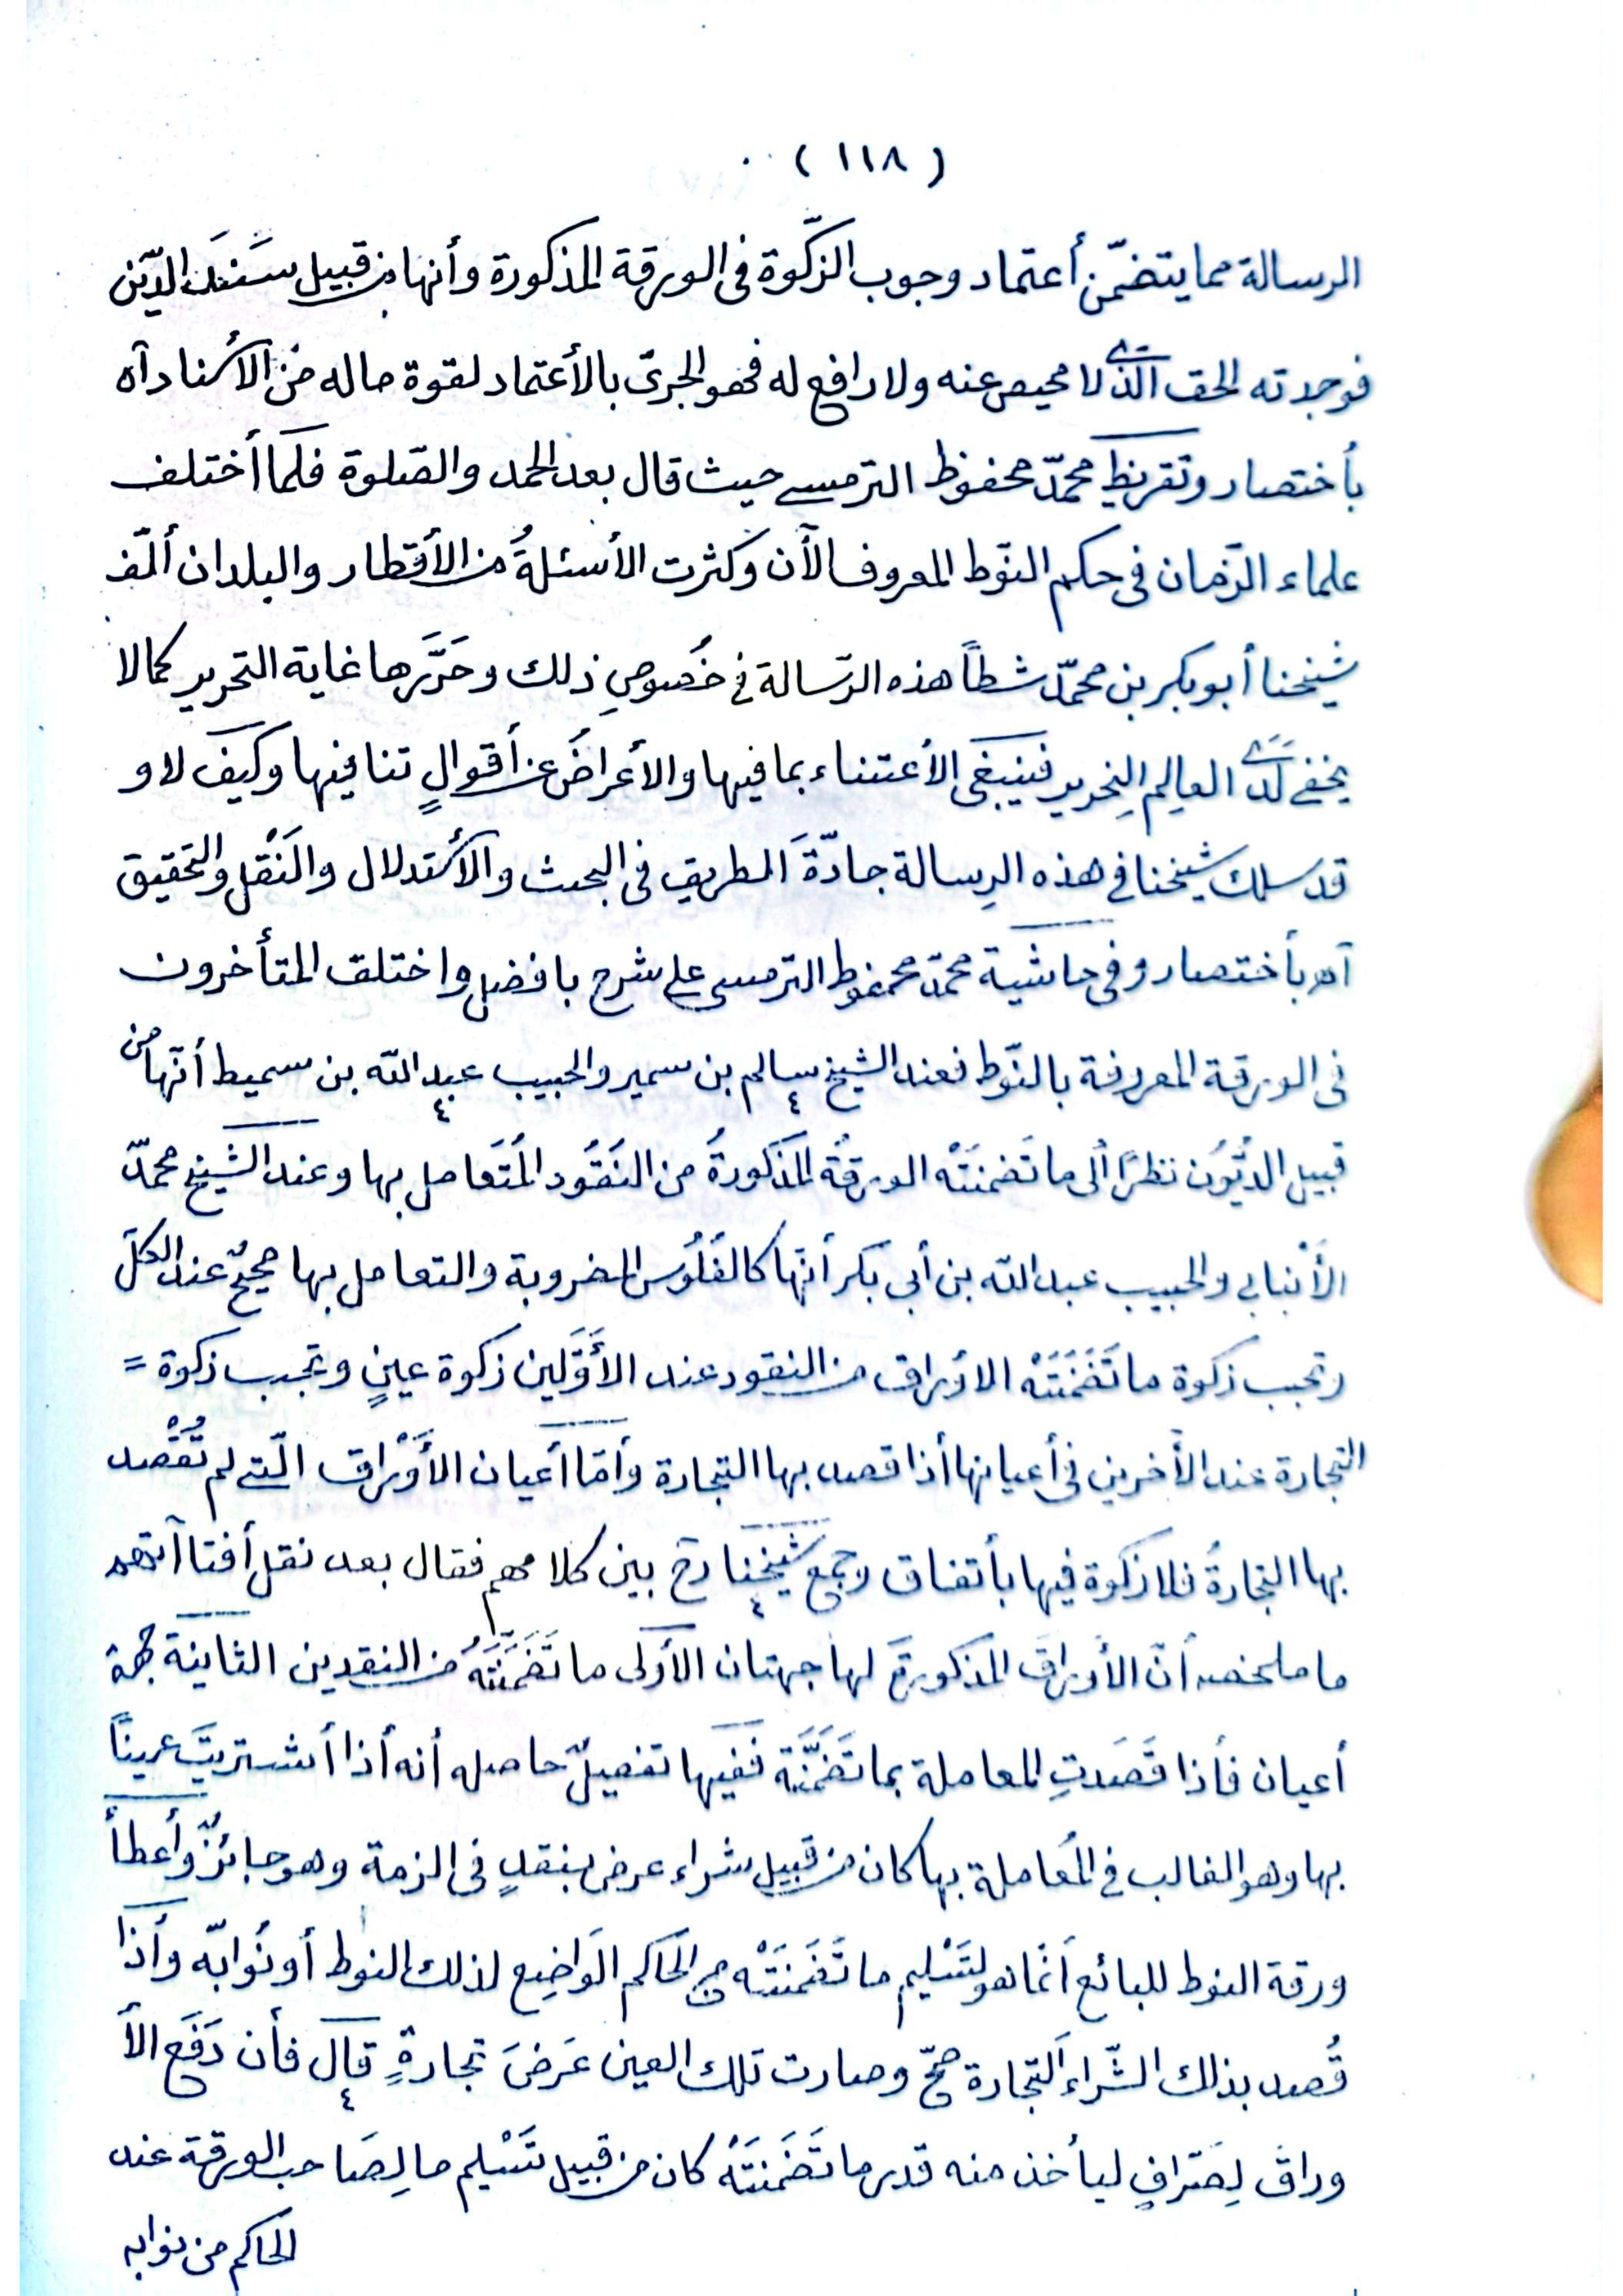 ( ١١٨ )
الرسالة مما يتضمّن أعتماد وجوب الزّكوة فى الورقة المذكورة وأنها من قبيل سَنَد الدَّين
فوجدته الحق الّذى لا محيص عنه ولا رافع له فهو الجرىّ بالأعتماد لقوة ماله من الأسناد آه
بأختصار وتقريظ محمّد محفوظ الترمسى حيث قال بعد الحمد والصّلوة فلمّا أختلف
علماء الزّمان فى حكم النّوط المعروف الآن وكثرت الأسئلةُ من الأقطار والبلدان ألّف
شيخنا أبو بكر بن محمّد شطاً هذه الرّسالة فى خُصوصِ ذلك وحَرَّرها غاية التحرير كما لا
يخفى لَدَى العالِم النِحرير فينبغى الأعتناء بما فيها والأعراضُ عن أقوالٍ تنافيها وكيف لا و
قد سلك شيخنا فى هذه الرِسالة جادّةَ الطريق فى البحث والأستدلال والنَقْل والتحقيق
آه بأختصار وفى حاشية محمّد محفوظ الترمسى على شرح بافضل واختلف المتأخرون
فى الورقة المعروفة بالنّوط فعند الشيخ سالم بن سمير والحبيب عبد الله بن سميط أنّها من
قبيل الديُون نظرًا ألى ما تَضمنَتْه الورقةُ المذكورةُ من النقُود المُتَعامل بها وعند الشيخ محمّد
الأنبابى والحبيب عبد الله بن أبى بكر أنّها كالفُلُوس المضروبة والتعامل بها صحيحٌ عند الكلّ
وتجب زكوة ما تَضَمَنَتْه الأوراق من النقود عند الأَوَّلين زكوة عينٍ وتجب زكوة =
التجارة عند الأخرين فى أعيانها أذا قصد بها التجارة وأمّا أعيان الأَوْراق الّتى لم تُقْصد
بها التجارةُ فلا زكوة فيها بأتفاق وجمع شيخنا رح بين كلامهم فقال بعد نقل أفتاآتهم
ما ملخصه أنّ الأوراقَ المذكورةَ لها جهتان الأولى ما تَضَمَّنَتْهُ من النقدين الثانية جهة
أعيان فأذا قَصَدتِ المعاملة بما تَضَمَّنَتْه ففيها تفصيلٌ حاصله أنه أذا أشتريتَ عيناً
بها وهو الغالب فى المُعاملة بها كان من قبيل شراء عرض بنقدٍ فى الزمة وهو جائزٌ وأعطأ
ورقة النوط للبائع أنّما هو لتَسْليم ما تَضَمَنَتْه من الحَاكم الوَاضِع لذلك النوط أو نُوابّه وأذا
قُصد بذلك الشّراء التجارة صحّ وصارت تلك العين عَرَضَ تجارةٍ قال فأن دَفَع الأ
وراق لِصَرافٍ ليأخذ منه قدر ما تَضَمَنَتْهُ كان من قبيل تَسْليم ما لِصَاحب الورقة عند
الحاكم من نوابه